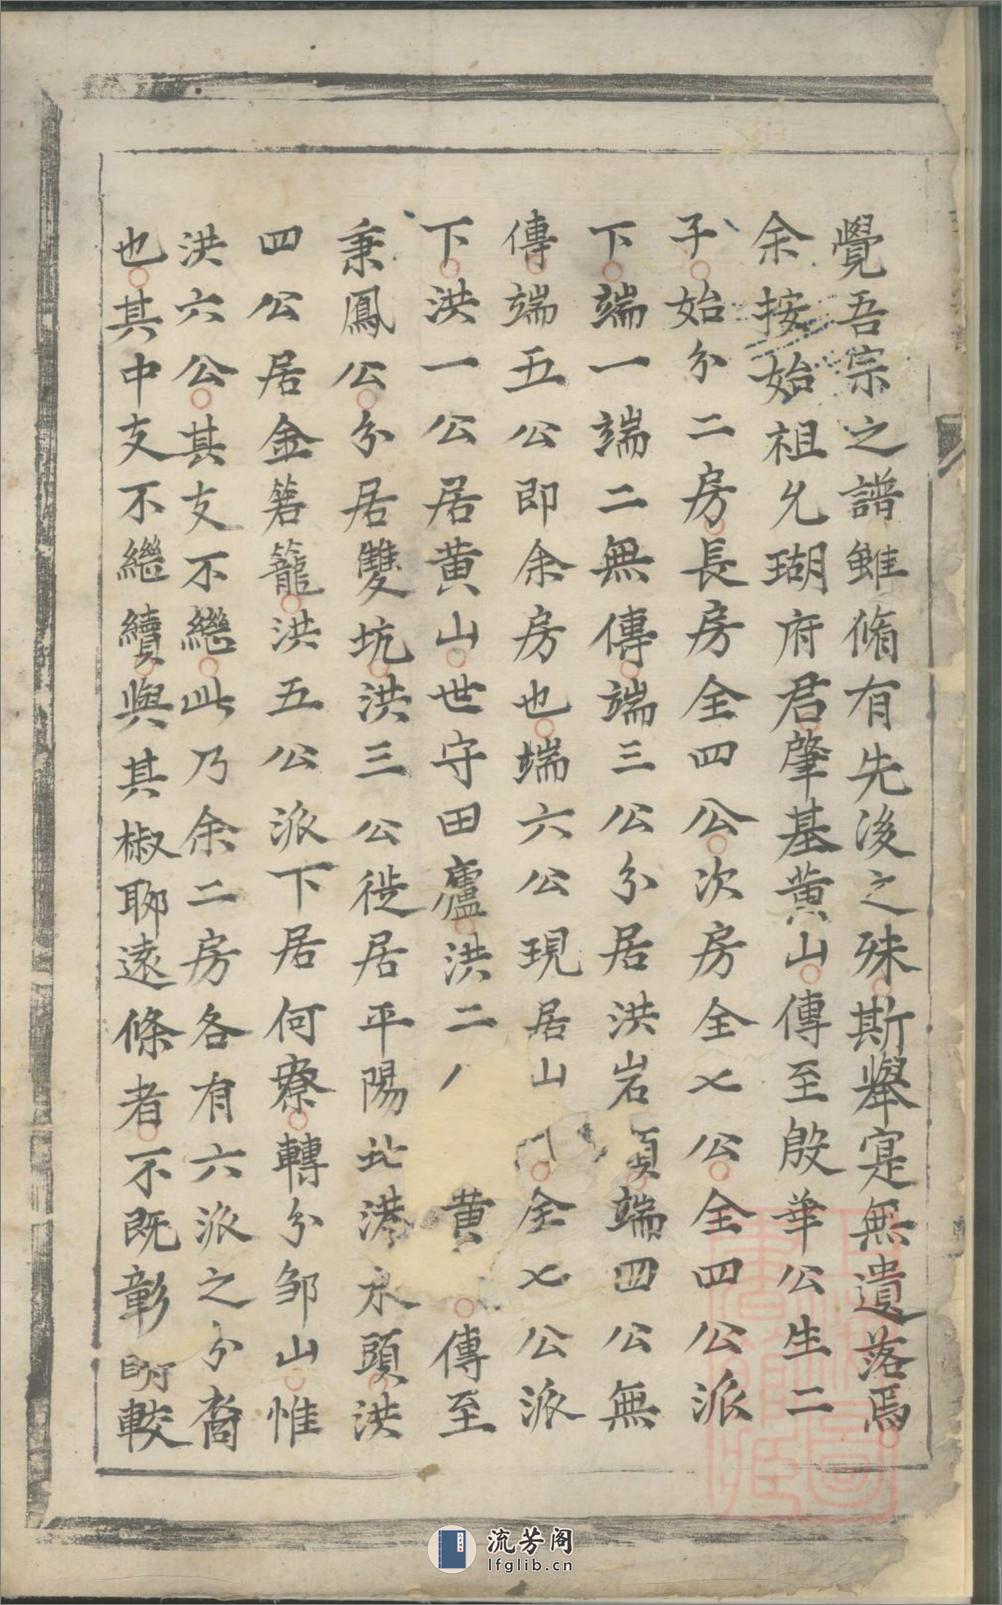 覺吾宗之譜雖脩有先後之殊斯舉寔無遺落焉
余按始祖允瑚府君肇基黄山傳至殷華公生二
子始分二房長房全四公次房全七公全四公派
下端一端二無傳端三公分居洪岩頭端四公無
傳端五公即余房也端六公現居山全七公派
下洪一公居黄山世守田廬洪二黄傳至
秉鳳公分居雙坑洪三公徙居平陽北港水頭洪
四公居金箬籠洪五公派下居何寮轉分邹山惟
洪六公其支不繼此乃余二房各有六派之分裔
也其中支不繼續與其椒聊遠條者不既彰明較
流芳阁
lfglib.cn